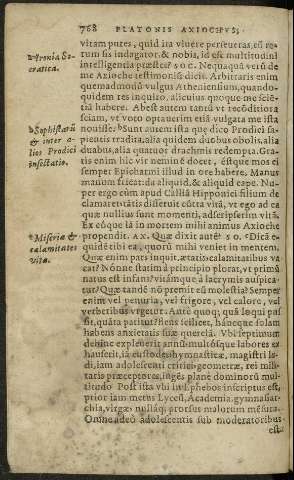 768 PLATONIS AXIOCHVS,
vitam putes, quid ita viuere perseueras, cū re-
rum sis indagator, & nobis, id est multitudini
intelligentia præstes? SOC. Nequaquā verū de
me Axioche testimoniū dicis. Arbitraris enim
quemadmodū vulgus Atheniensium, quando-
quidem res inquiro, alicuius quoque me sciē-
tiā habere. Abest autem tantū vt reconditiora
sciam, vt voto optauerim etiā vulgata me ista
nouisse. Sunt autem ista quę dico Prodici sa-
pientis tradita, alia quidem duobus obolis, alia
duabus, alia quatuor drachmis redempta. Gra-
tis enim hic vir neminē docet, éstque mos ei
semper Epicharmi illud in ore habere. Manus
manum fricat: da aliquid, & aliquid cape. Nu-
per ergo cùm apud Calliā Hipponici filium de
clamaret tātis disseruit cōtra vitā, vt ego ad ea
quæ nullius sunt momenti, adscripserim vitā.
Ex eóque iā in mortem mihi animus Axioche
propendit. AX. Quæ dixit autē? SO. Dicā e-
quidē tibi ea, quorū mihi veniet in mentem.
Quæ enim pars inquit, ætatis calamitatibus va
cat? Nónne statim à principio plorat, vt primū
natus est infans? vitámque à lacrymis auspica-
tur? Quæ tandē nō premit eū molestia? Semper
enim vel penuria, vel frigore, vel calore, vel
verberibus vrgetur. Antè quoq; quā loqui pos
sit, quàm patitur? flens scilicet, hāncque solam
habens anxietatis suæ querelā. Vbi septimum
deinde expleuerit annū multósque labores ex
hauserit, iā custodes, gymnasticæ, magistri lu-
di, iam adolescenti critici, geometræ, rei mili-
taris præceptores, ingēs planè dominorū mul-
titudo. Post ista vbi in Ephebos inscriptus est,
prior iam metus Lycęū, Academia, gymnasiar-
chia, virgæ, nulláq; prorsus malorum mēsura.
Omne adeò adolescentis sub moderatoribus
est
Ironia So-
cratica.
Sophistarū
& inter a-
lios Prodici
insectatio.
Miseriæ &
calamitates
vitæ.